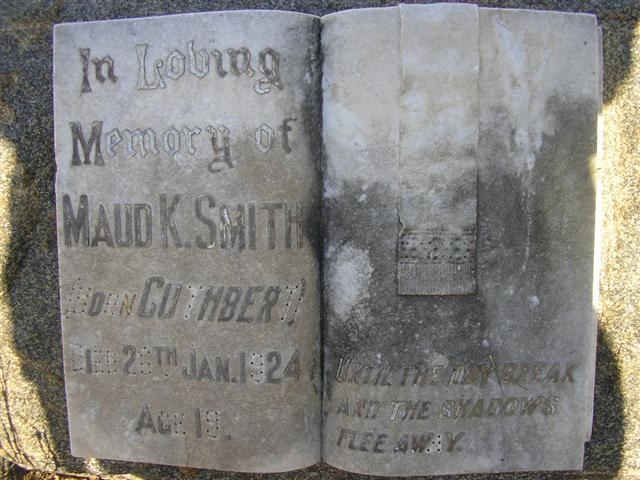 In Loving
Memory of
MAUD K. SMITH
(BORN CUTHBERT)
DIED 28TH JAN. 1924
AGE 19.
UNTIL THE DAY BREAK
AND THE SHADOWS
FLEE AWAY.